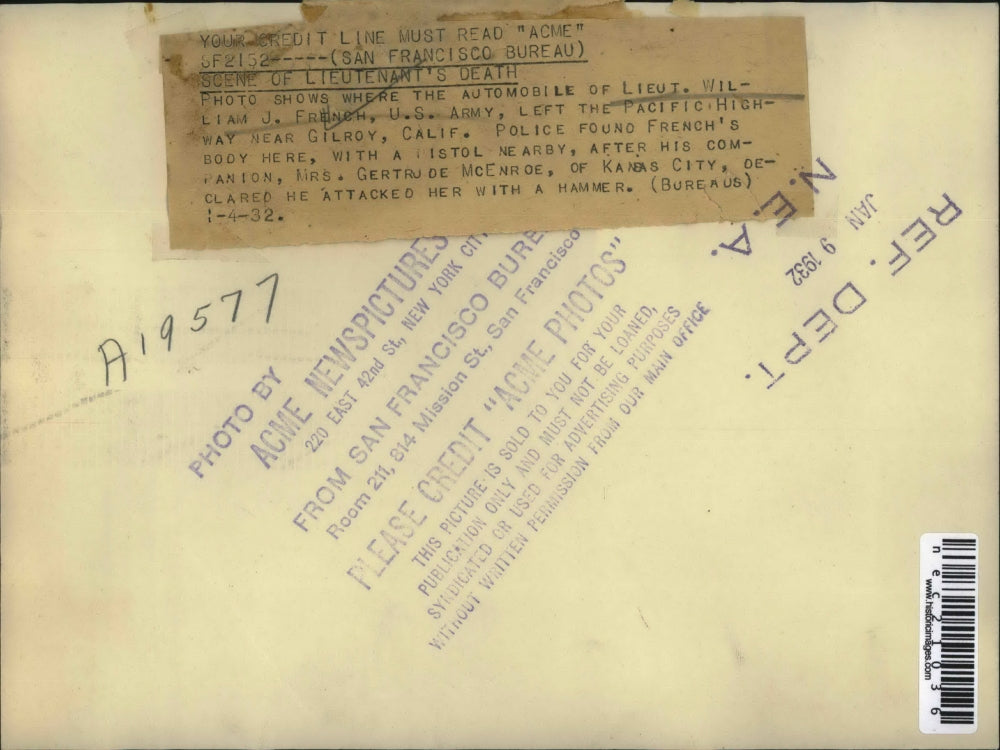 YOUR CREDIT LINE MUST READ "ACME"
SF2152-----(SAN FRANCISCO BUREAU)
SCENE OF LIEUTENANT'S DEATH
PHOTO SHOWS WHERE THE AUTOMOBILE OF LIEUT. WIL-
LIAM J. FRENCH, U.S. ARMY, LEFT THE PACIFIC HIGH-
WAY NEAR GILROY, CALIF. POLICE FOUND FRENCH'S
BODY HERE, WITH A PISTOL NEARBY, AFTER HIS COM-
PANION, MRS. GERTRUDE MCENROE, OF KANSAS CITY, DE-
CLARED HE ATTACKED HER WITH A HAMMER. (BUREAUS)
1-4-32.
N.E.A.
JAN 9 1932
REF. DEPT.
A19577
PHOTO BY
ACME NEWSPICTURES
220 EAST 42nd St., NEW YORK CITY
FROM SAN FRANCISCO BURE
Room 211, 814 Mission St., San Francisco
PLEASE CREDIT "ACME PHOTOS"
THIS PICTURE IS SOLD TO YOU FOR YOUR
PUBLICATION ONLY AND MUST NOT BE LOANED,
SYNDICATED OR USED FOR ADVERTISING PURPOSES
WITHOUT WRITTEN PERMISSION FROM OUR MAIN OFFICE
nec21036
www.historicimages.com